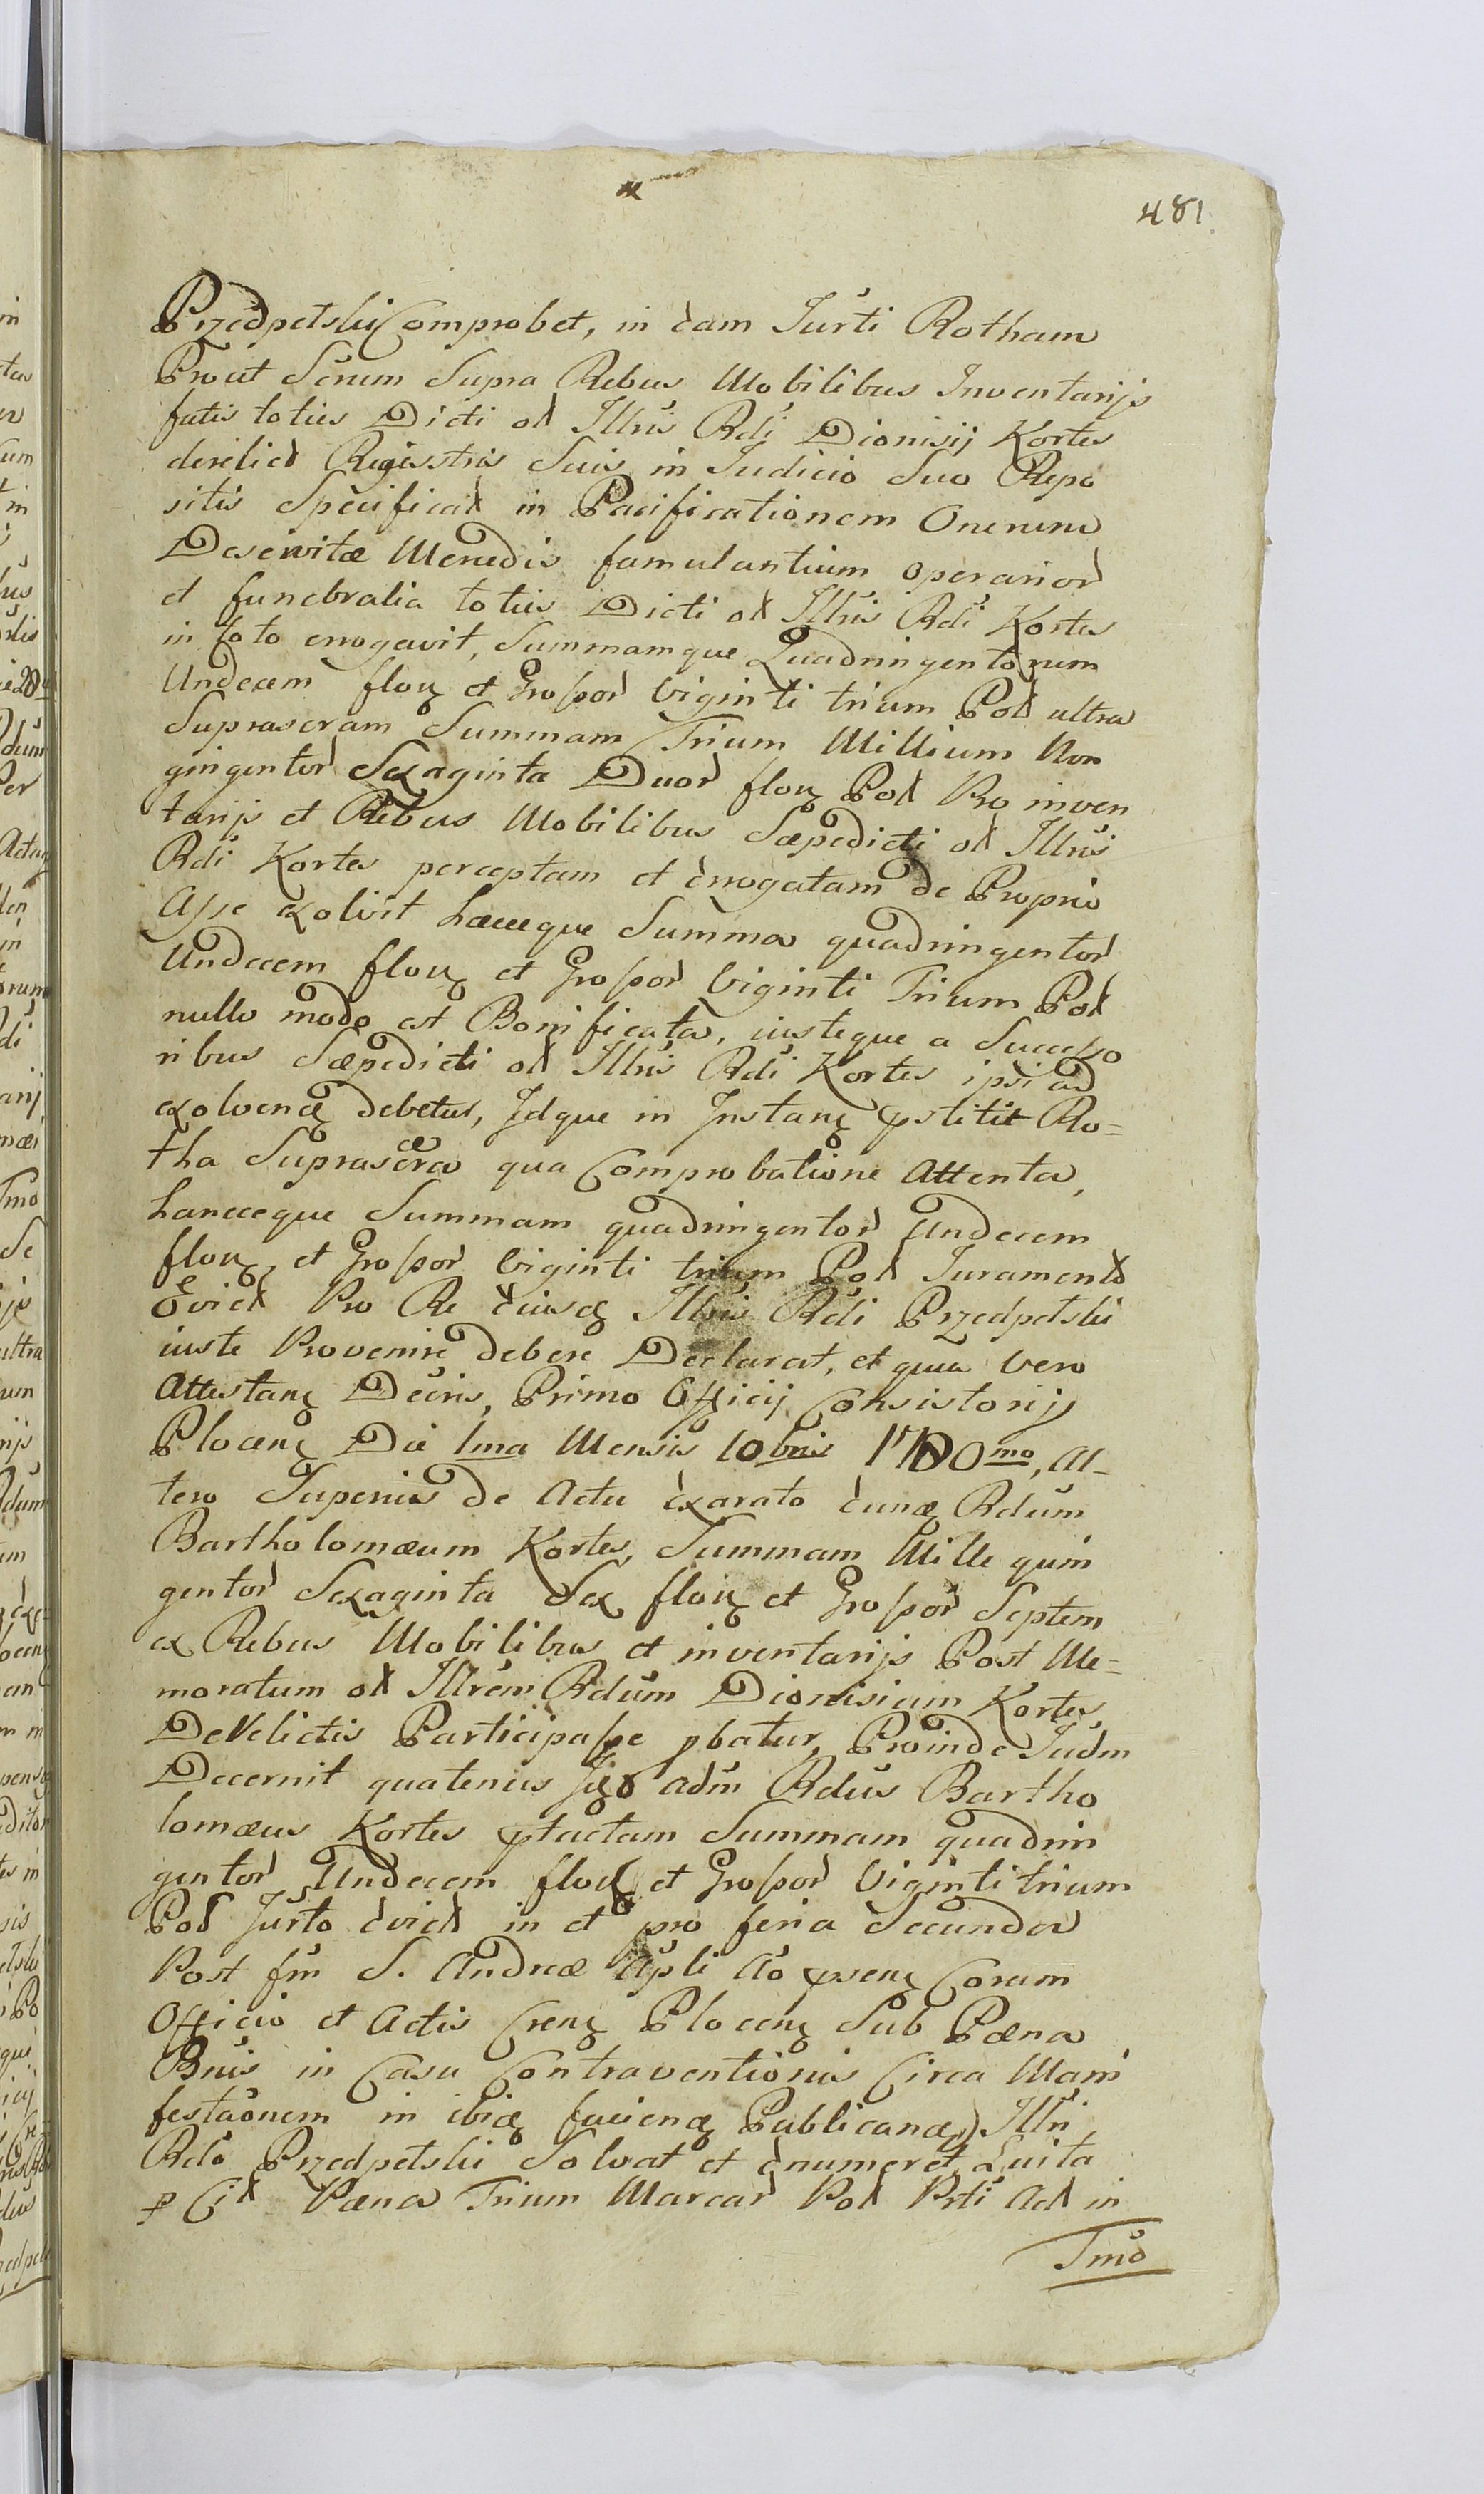 481
Przedpetski Comprobet, in eam Jurti Rotham
Prout Senum Supra Rebus Mobilibus Inventarijs
fatis toties Dicti ol Illris Rdi Dionisij Kortes
derelict Regestris Suis in Judicio Suo Repo
sitis Specificat in Pacificationem Onerum
Deservitæ Mercedis famulantium operarior
et funebralia toties Dicti ol Illris Rdi Kortes
in toto erogavit, Summamque Quadringentorum
Undecem flor et Grossor Viginti trium Pol ultra
Suprascram Summam Trium Millium Non
gingentor Sexaginta Duor flor Pol Pro inven
tarijs et Rebus Mobilibus Sæpedicti ol Illris
Rdi Kortes perceptam et erogatam de Proprio
Asse exolvit hæcceque Summa quadringentor
Undecem flor et Grossor Viginti Trium Pol
nullo modo est Bonificata, iusteque a Successo
ribus Sæpedicti ol Illris Rdi Kortes ipsi ad
exolvend debetur, Idque in Instan pstitit Ro=
tha Suprascra qua Comprobatione Attenta,
hancceque Summam quadringentor Undecem
flor et Grossor Viginti trium Pol Juramento
Evict Pro Re eiusd Illris Rdi Przedpetski
iuste Provenire debere Declarat, et quia vero
Attestan Decris, Primo Officij Consistorij
Plocen Die 1ma Mensis 10bris 1780mo, Al-
tero Superius de Actu exarato eund Rdum
Bartholomæum Kortes, Summam Mille quin
gentor Sexaginta Sex flor et Grossor Septem
ex Rebus Mobilibus et inventarijs Post Me=
moratum ol Illrem Rdum Dionisium Kortes
DeRelictis Participasse pbatur, Proinde Judm
Decernit quatenus Idem adm Rdus Bartho
lomæus Kortes ptactam Summam quadrin
gentor Undecem flor et Grossor Viginti trium
Pol Jurto evict in et pro feria Secunda
Post fm S. Andreæ Apli Ao psen Coram
Officio et Actis Cren Plocen Sub Pæna
Bnis in Casu Contraventionis Circa Mani
festaonem in ibid faciend Publicand, Illri
Rdo Przedpetski Solvat et enumeret Quita
Pæna Trium Marcar Pol Prti Act in
Tmo